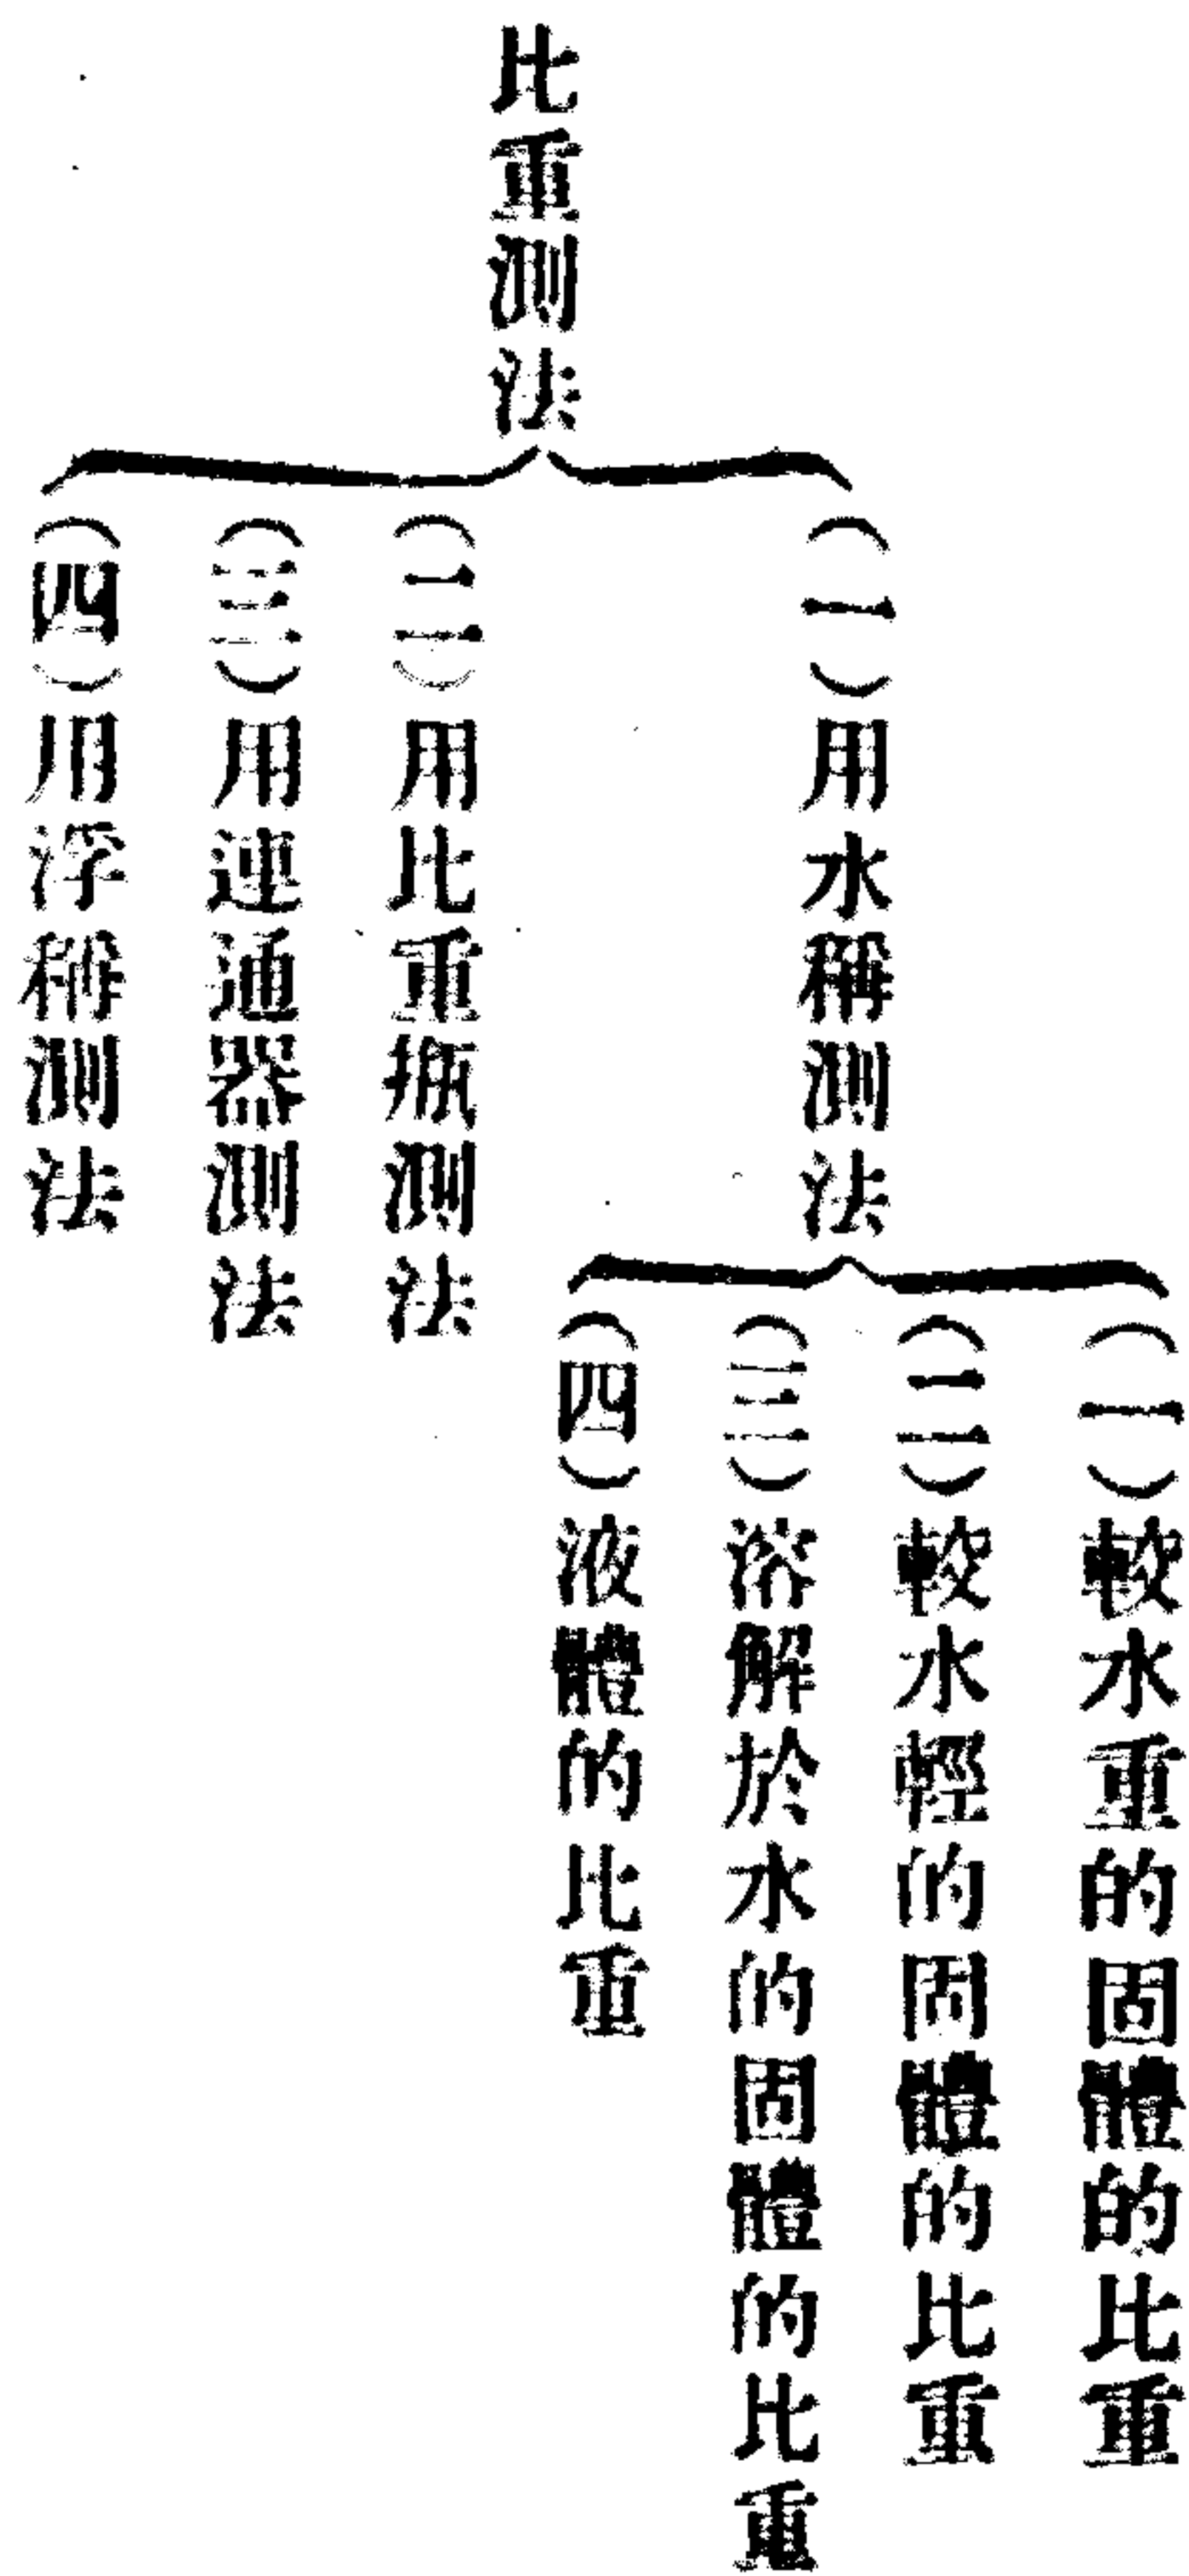 比重測法
（一）用水稱測法
（一）較水重的固體的比重
（二）較水輕的固體的比重
（三）溶解於水的固體的比重
（四）液體的比重
（二）用比重瓶測法
（三）用連通器測法
（四）用浮稱測法